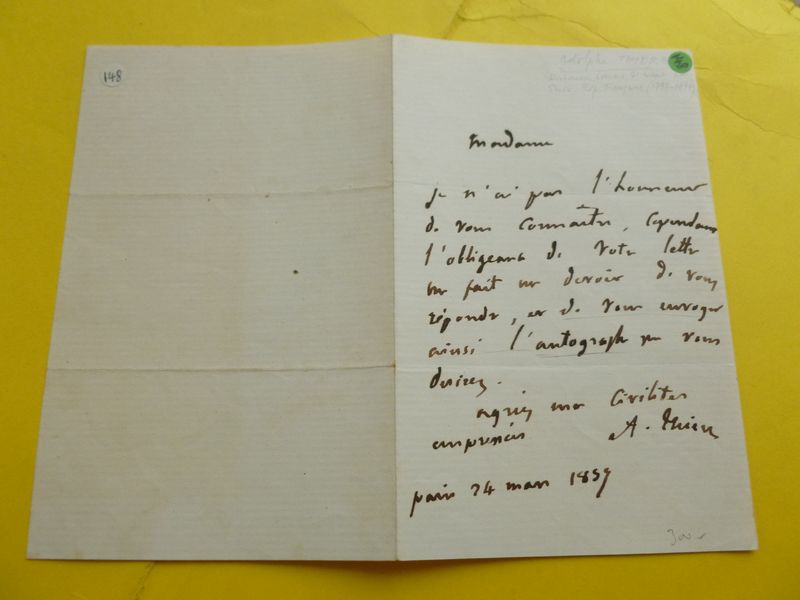 148
Adolphe THIERS
Madame
je n'ai pas l'honneur
de vous connaître, cependant
l'obligeance de votre lettre
me fait un devoir de vous
répondre, et de vous envoyer
ainsi l'autographe que vous
desirez.
agréez mes civilités
empressées A. Thiers
paris 24 mars 1859
300